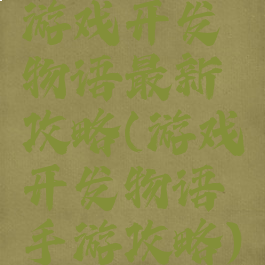 游戏开发
物语最新
攻略(游戏
开发物语
手游攻略)